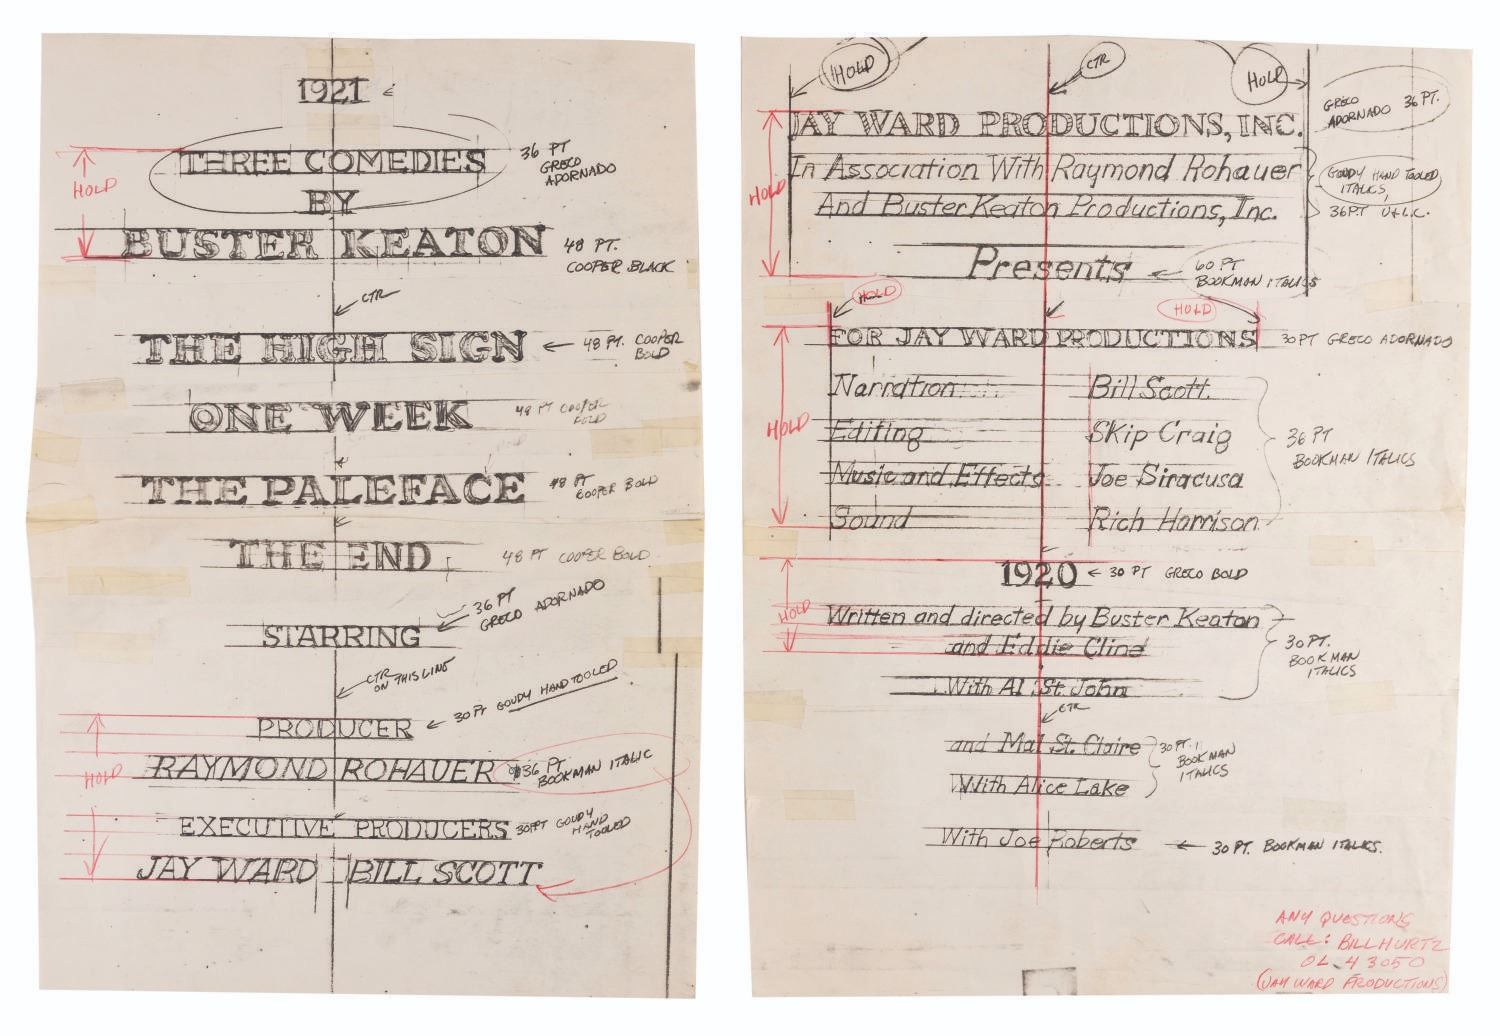 1921
THREE COMEDIES
36 PT
GRECO
ADORNADO
HOLD
BY
BUSTER KEATON
48 PT.
COOPER BLACK
CTR
THE HIGH SIGN
48 PT. COOPER
BOLD
ONE WEEK
48 PT COOPER
BOLD
THE PALEFACE
48 PT
COOPER BOLD
THE END
48 PT COOPER BOLD
36 PT
GRECO ADORNADO
STARRING
CTR
ON THIS LINE
30 PT GOUDY HANDTOOLED
PRODUCER
HOLD
RAYMOND ROHAUER
36 PT
BOOKMAN ITALIC
EXECUTIVE PRODUCERS
30 PT GOUDY
HAND
TOOLED
JAY WARD BILL SCOTT
HOLD
CTR
HOLD
GRECO
ADORNADO 36 PT.
JAY WARD PRODUCTIONS, INC.
In Association With Raymond Rohauer
GOUDY HAND TOOLED
ITALICS,
HOLD
And Buster Keaton Productions, Inc.
36PT U+L.C.
Presents
60 PT
BOOKMAN ITALICS
HOLD
HOLD
FOR JAY WARD PRODUCTIONS
30 PT GRECO ADORNADO
Narration Bill Scott
HOLD
Editing Skip Craig
36 PT
BOOKMAN ITALICS
Music and Effects Joe Siracusa
Sound Rich Harrison
1920
30 PT GRECO BOLD
HOLD
Written and directed by Buster Keaton
and Eddie Cline
30 PT.
BOOKMAN
ITALICS
With Al St. John
CTR
and Mal St. Claire
30 PT.
BOOKMAN
ITALICS
With Alice Lake
With Joe Roberts
30 PT. BOOKMAN ITALICS.
ANY QUESTIONS
CALL: BILL HURTZ
OL 4 3050
(JAY WARD PRODUCTIONS)